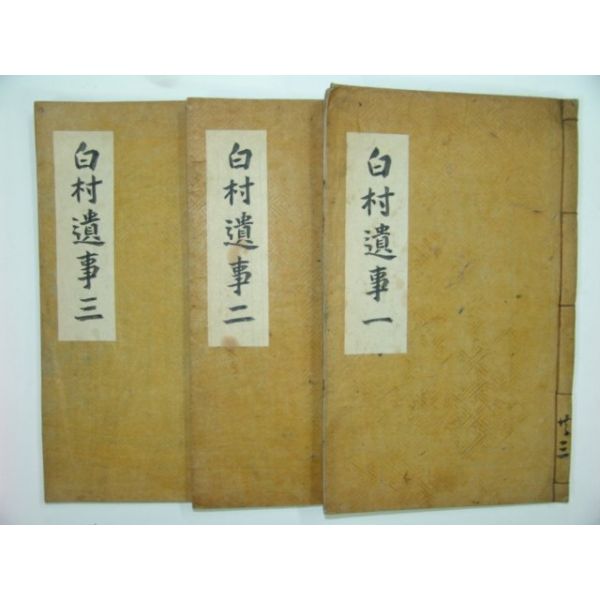 白村遺事一
白村遺事二
白村遺事三
共三